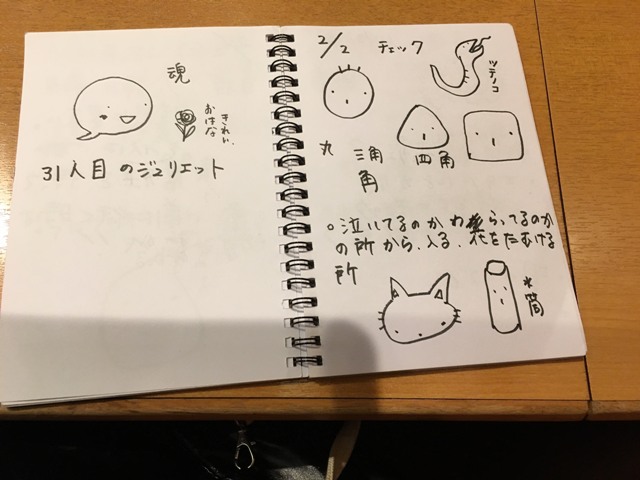 魂
きれい
おはな
31人目のジュリエット
2/2 チェック
ツチノコ
丸
三角
角
四角
○泣いてるのかわらってるのか
の所から、入る、花をたむける
所
水筒